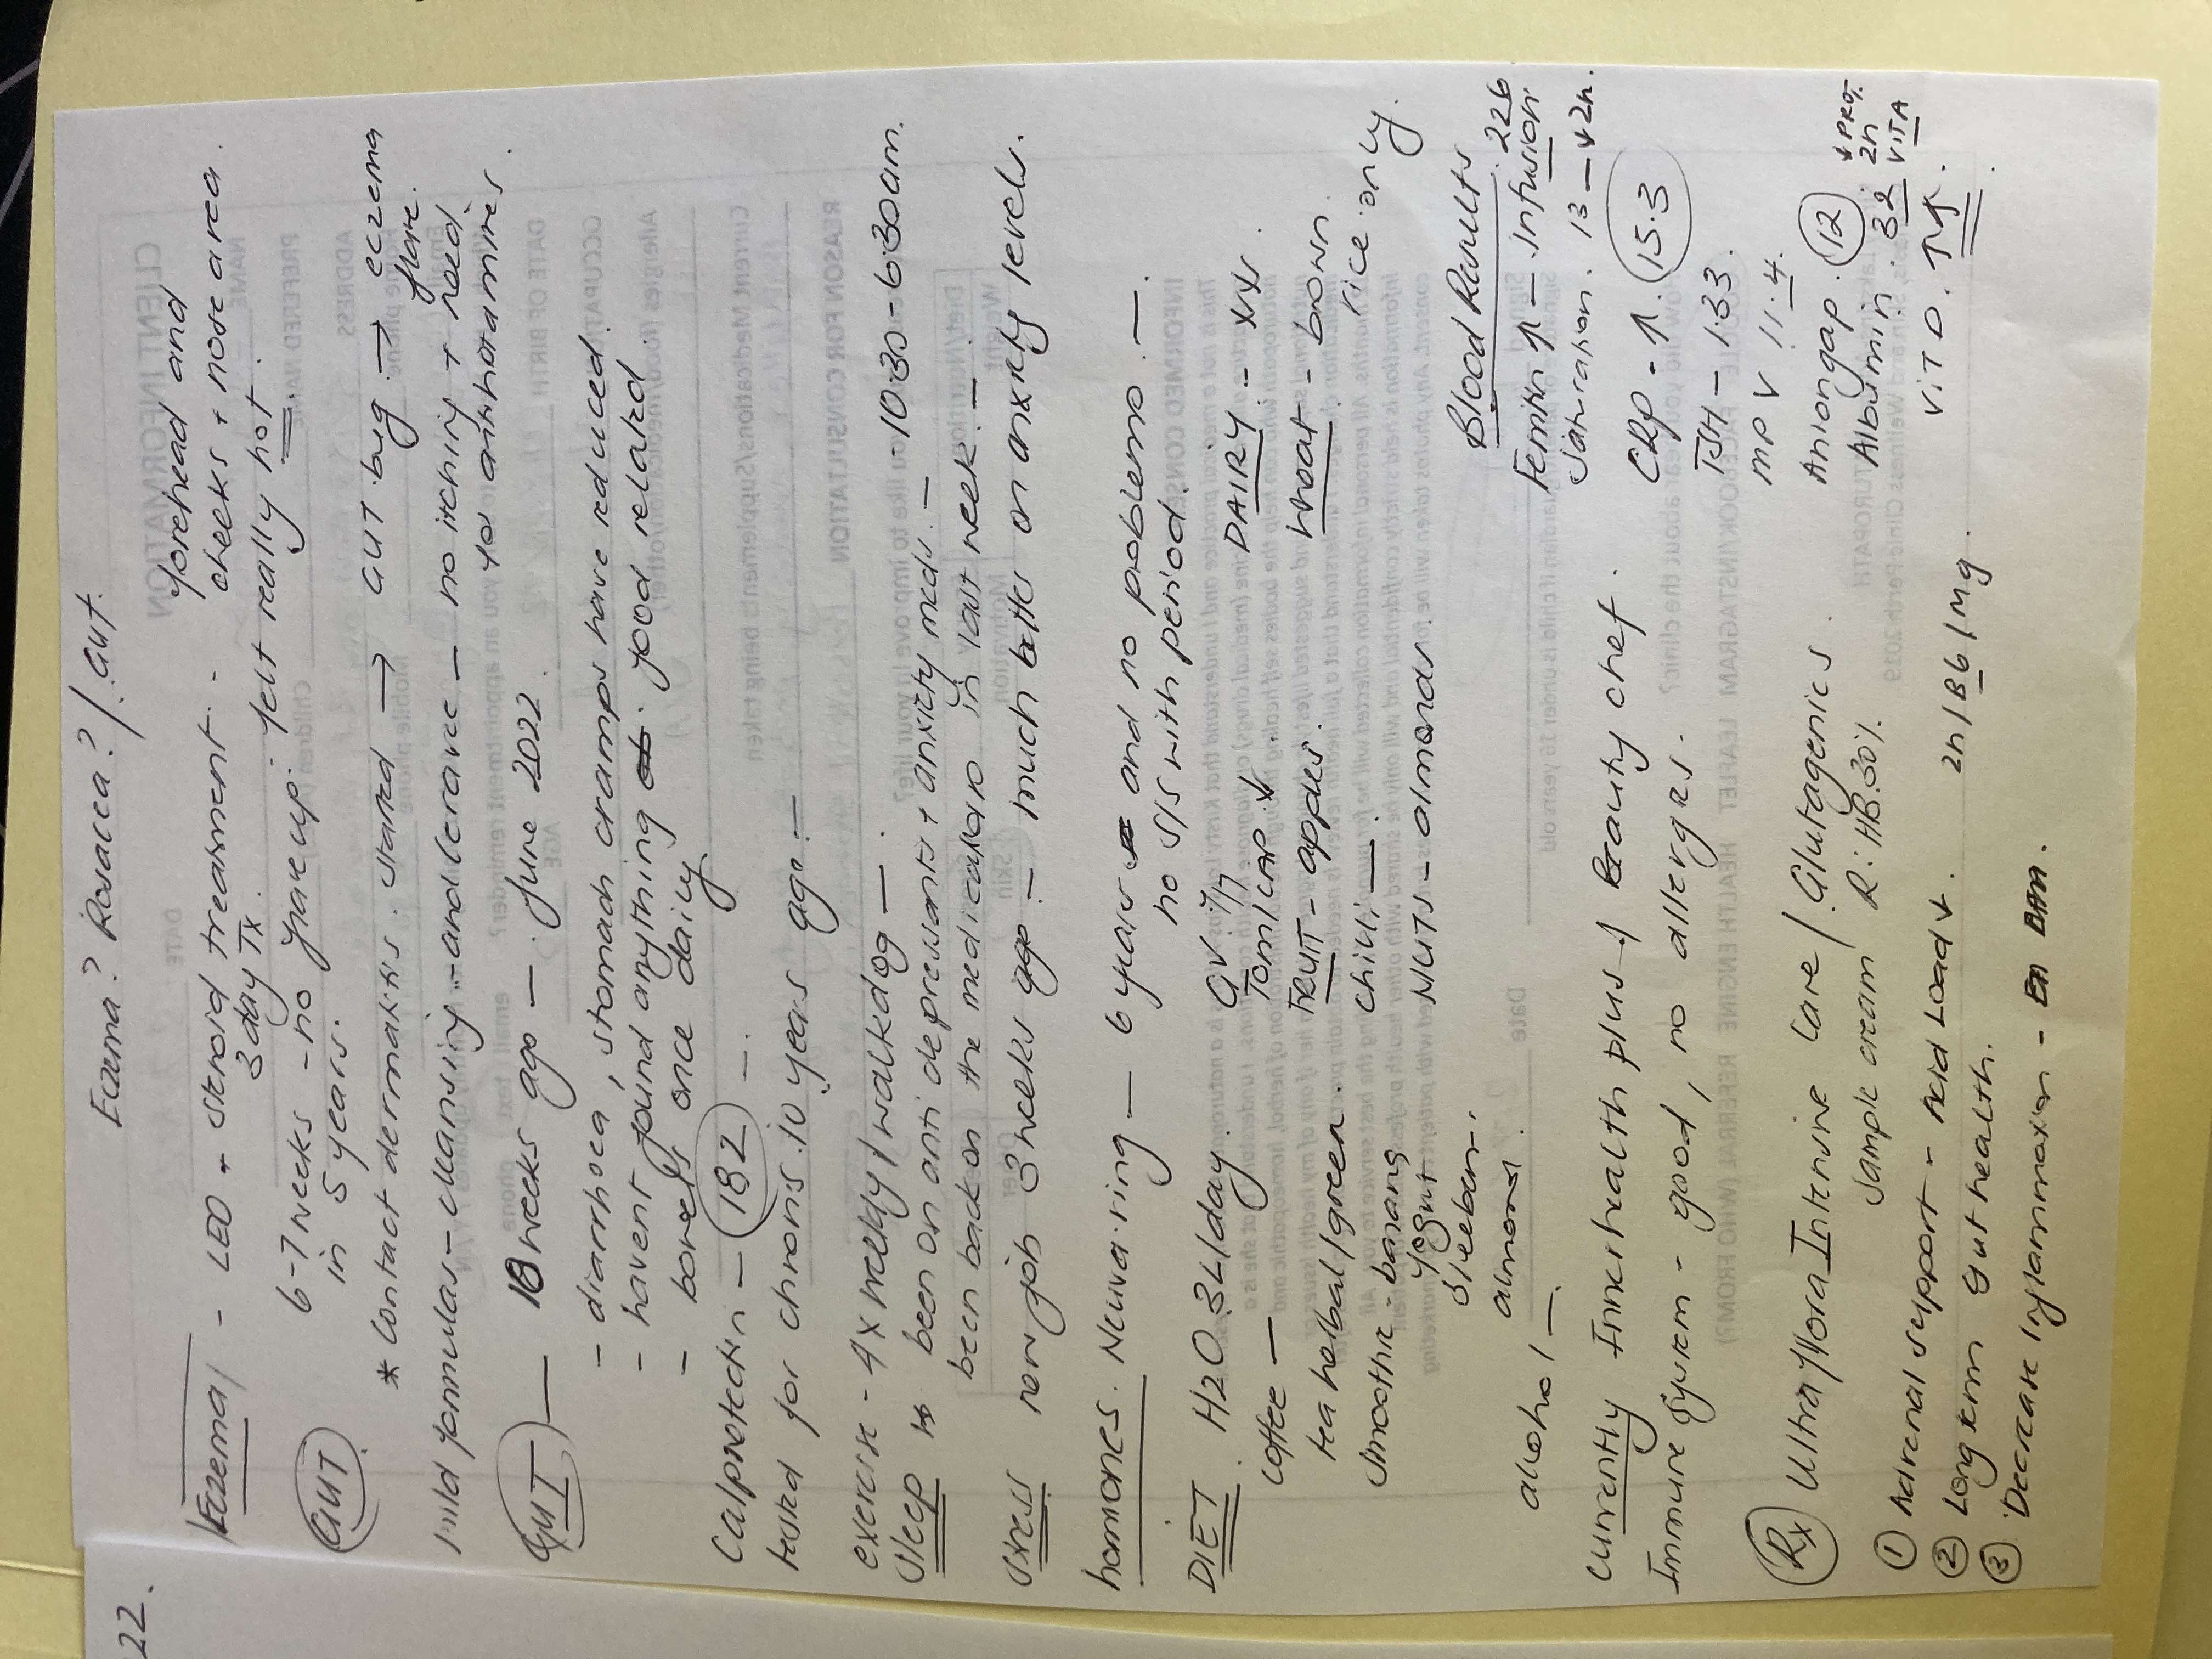 22.
Eczema? Rosacea? / GUT.
Eczema / - LED + steroid treatment. - forehead and
3 day Tx. cheeks + nose area.
GUT. 6-7 weeks - no flare up. felt really hot.
in 5 years.
* contact dermatitis. started → GUT bug → eczema
flare.
mild formulas - cleansing - and cerave - no itching + need
for antihistamines.
GUT - 18 weeks ago - June 2022.
- diarrhoea, stomach cramps have reduced.
- havent found anything food related.
- bowels once daily
Calprotectin - 182 -.
tested for chrons. 10 years ago -
exercise - 4x weekly / walkdog -
sleep been on anti depressants + anxiety meds. - 10.30 - 6.30am.
been back on the medications in last week. -
stress new job 3 weeks ago - much better on anxiety levels.
hormones. Nuvaring - 6 years and no problems. -
no s/s with period.
DIET. H2O 3L/day. GV 7/7 DAIRY - xxx.
coffee - Tom/CAP ↓ wheat - brown
tea herbal/green. FRUIT - apples. rice only.
smoothie - banana chilli -
yogurt NUTS - almonds.
S/eebran.
almond.
alcohol -.
Blood Results
Ferritin ↑ - 226 Infusion
Saturation. 13 - ↓ Zn.
CRP - ↑. 15.3
TSH - 1.33.
MPV 11.4.
Aniongap. 12
Albumin. 32 ↓ PROT. Zn VIT A
VIT D. ↑↑.
currently Innerhealth plus / Beauty chef.
Immune system - good, no allergies.
Rx Ultraflora Intensive Care / Glutagenics.
Sample cream R: HB. 30%.
① Adrenal support - Acid Load ↓. Zn / B6 / Mg.
② Long term gut health.
③ Decrease Inflammation -